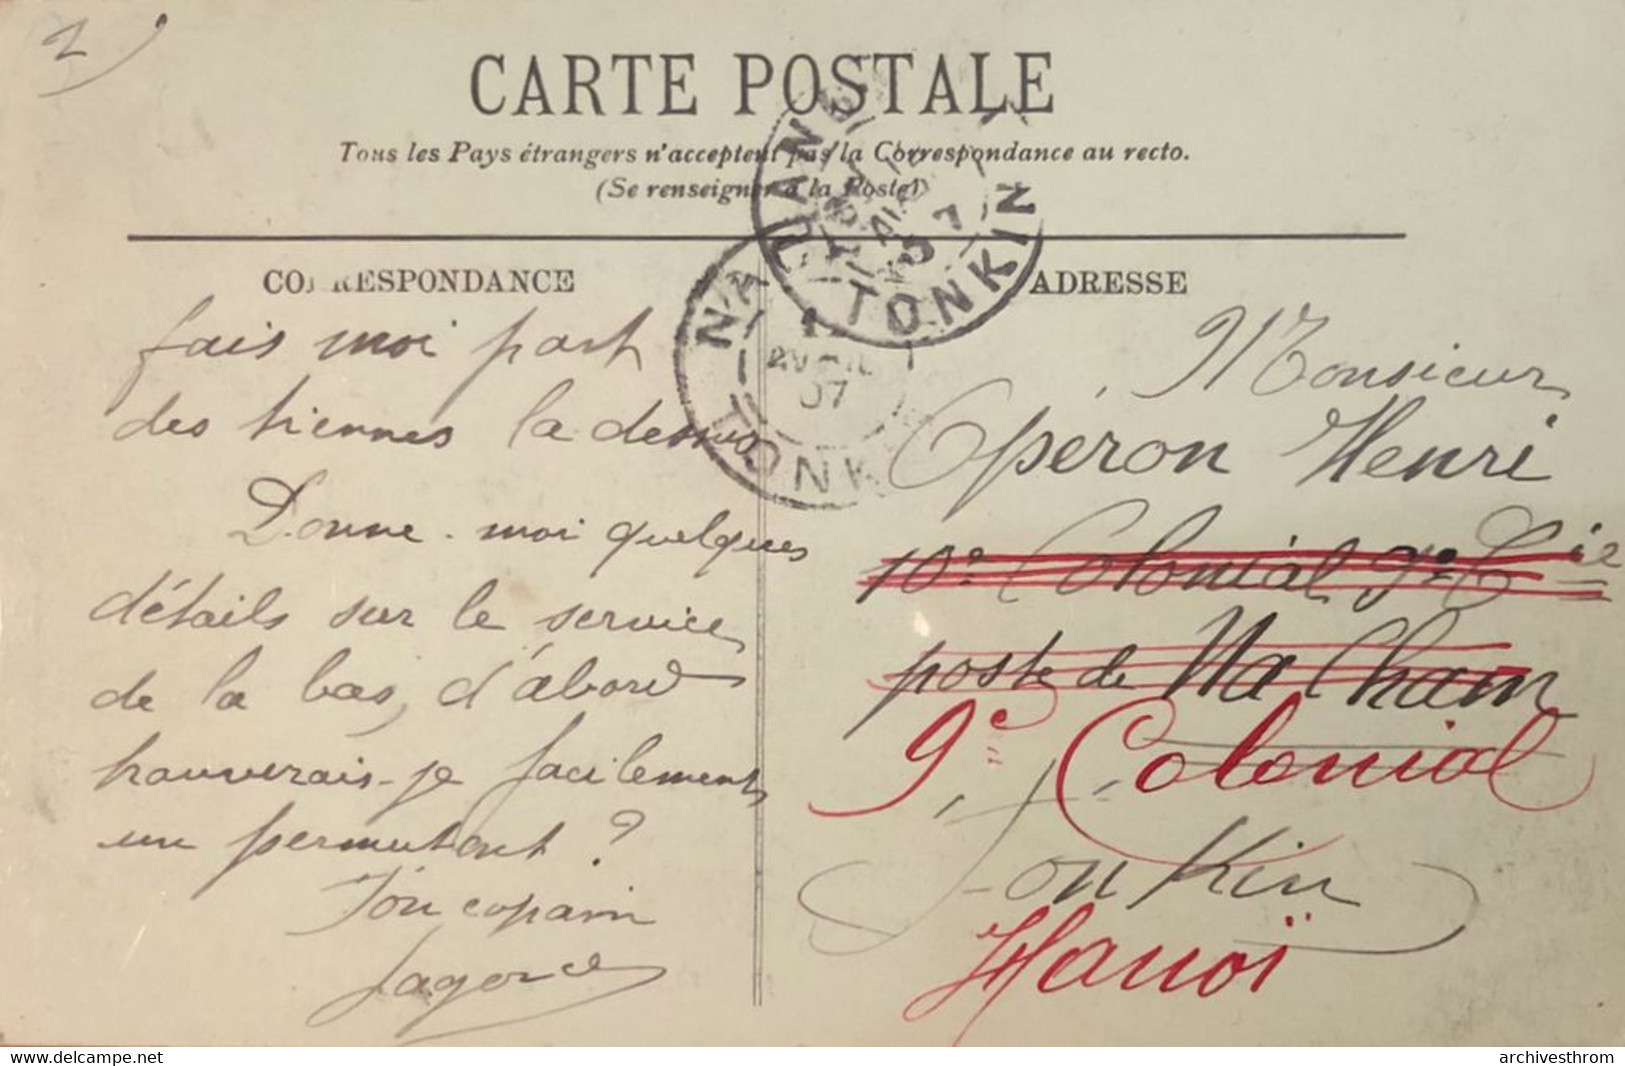 2)
CARTE POSTALE
Tous les Pays étrangers n'acceptent pas la Correspondance au recto.
(Se renseigner à la Poste)
CORRESPONDANCE
fais moi part
des tiennes la dessus
Donne-moi quelques
détails sur le service
de la bas, d'abord
trouverais-je facilement
un permutant ?
Ton copain
ADRESSE
Monsieur
Opéron Henri
10e Colonial 9e Cie
poste de Na Cham
9e Colonial
Tonkin
Hanoï
TONKIN
AVRIL
07
TONK
delcampe.net
archivesthrom